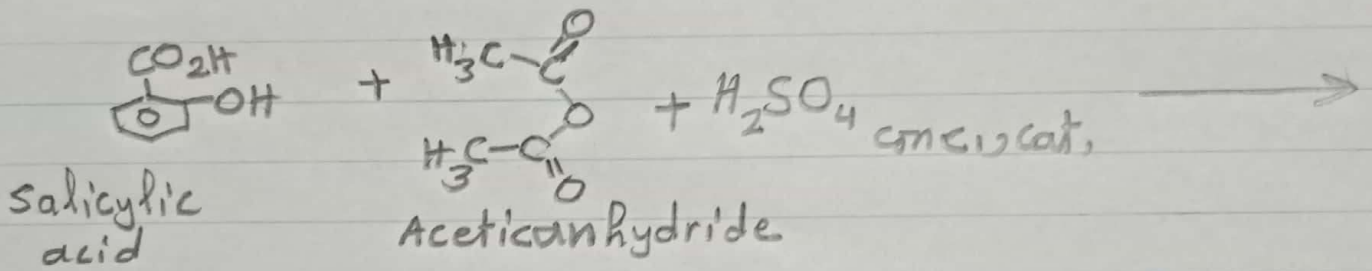 CO2H
OH
+
H3C-C=O
O
H3C-C=O
+ H2SO4 conc., cat.
salicylic
acid
Aceticanhydride